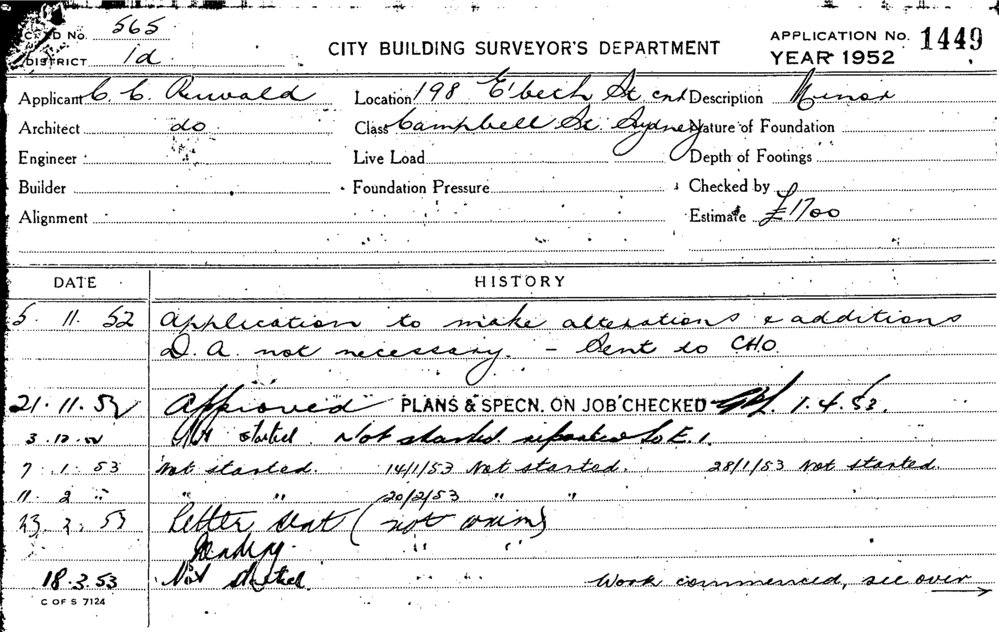 CARD No. 565
DISTRICT 1d.
CITY BUILDING SURVEYOR'S DEPARTMENT
APPLICATION No. 1449
YEAR 1952
Applicant C. C.
Location 198 E'beth St cnr
Description Minor
Architect do
Class Campbell St. Sydney
Nature of Foundation
Engineer
Live Load
Depth of Footings
Builder
Foundation Pressure
Checked by
Alignment
Estimate £1700
DATE
HISTORY
5. 11. 52 Application to make alterations & additions
D. A. not necessary. - Sent to CHO.
21. 11. 52 Approved PLANS & SPECN. ON JOB CHECKED 1.4.53.
3. 12. 52 Not started. Not started reported to E. 1.
7. 1. 53 Not started. 14/1/53 Not started. 28/1/53 Not started.
11. 2 " " " 20/2/53 " "
23. 2. 53 Letter sent (not
" "
18.3.53 Not started. Work commenced, see over
C OF S 7124